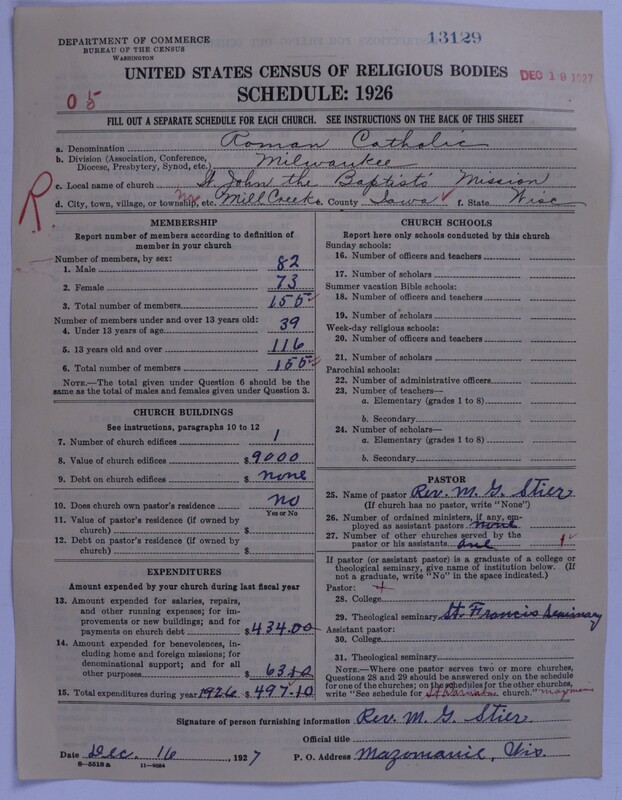 DEPARTMENT OF COMMERCE
BUREAU OF THE CENSUS
WASHINGTON
13129
UNITED STATES CENSUS OF RELIGIOUS BODIES
DEC 19 1927
SCHEDULE: 1926
0 5
FILL OUT A SEPARATE SCHEDULE FOR EACH CHURCH. SEE INSTRUCTIONS ON THE BACK OF THIS SHEET
a. Denomination Roman Catholic
b. Division (Association, Conference, Diocese, Presbytery, Synod, etc.) Milwaukee
c. Local name of church St John the Baptist's Mission
R
d. City, town, village, or township, etc. Mill Creek e. County Iowa f. State Wisc
MEMBERSHIP
Report number of members according to definition of member in your church
Number of members, by sex:
1. Male 82
2. Female 73
3. Total number of members 155
Number of members under and over 13 years old:
4. Under 13 years of age 39
5. 13 years old and over 116
6. Total number of members 155
NOTE.—The total given under Question 6 should be the same as the total of males and females given under Question 3.
CHURCH BUILDINGS
See instructions, paragraphs 10 to 12
7. Number of church edifices 1
8. Value of church edifices $ 9000
9. Debt on church edifices $ none
10. Does church own pastor's residence no
Yes or No
11. Value of pastor's residence (if owned by church) $
12. Debt on pastor's residence (if owned by church) $
EXPENDITURES
Amount expended by your church during last fiscal year
13. Amount expended for salaries, repairs, and other running expenses; for improvements or new buildings; and for payments on church debt $ 434.00
14. Amount expended for benevolences, including home and foreign missions; for denominational support; and for all other purposes $ 63.10
15. Total expenditures during year 1926 $ 497.10
CHURCH SCHOOLS
Report here only schools conducted by this church
Sunday schools:
16. Number of officers and teachers
17. Number of scholars
Summer vacation Bible schools:
18. Number of officers and teachers
19. Number of scholars
Week-day religious schools:
20. Number of officers and teachers
21. Number of scholars
Parochial schools:
22. Number of administrative officers
23. Number of teachers—
a. Elementary (grades 1 to 8)
b. Secondary
24. Number of scholars—
a. Elementary (grades 1 to 8)
b. Secondary
PASTOR
25. Name of pastor Rev. M. G. Stier
(If church has no pastor, write "None")
26. Number of ordained ministers, if any, employed as assistant pastors none
27. Number of other churches served by the pastor or his assistants one 1
If pastor (or assistant pastor) is a graduate of a college or theological seminary, give name of institution below. (If not a graduate, write "No" in the space indicated.)
Pastor:
28. College
29. Theological seminary St. Francis Seminary
Assistant pastor:
30. College
31. Theological seminary
NOTE.—Where one pastor serves two or more churches, Questions 28 and 29 should be answered only on the schedule for one of the churches; on the schedules for the other churches, write "See schedule for St Barnabas church."
Signature of person furnishing information Rev. M. G. Stier
Official title
Date Dec. 16, 1927 P. O. Address Mazomanie, Wis.
8—5518 a 11—9024